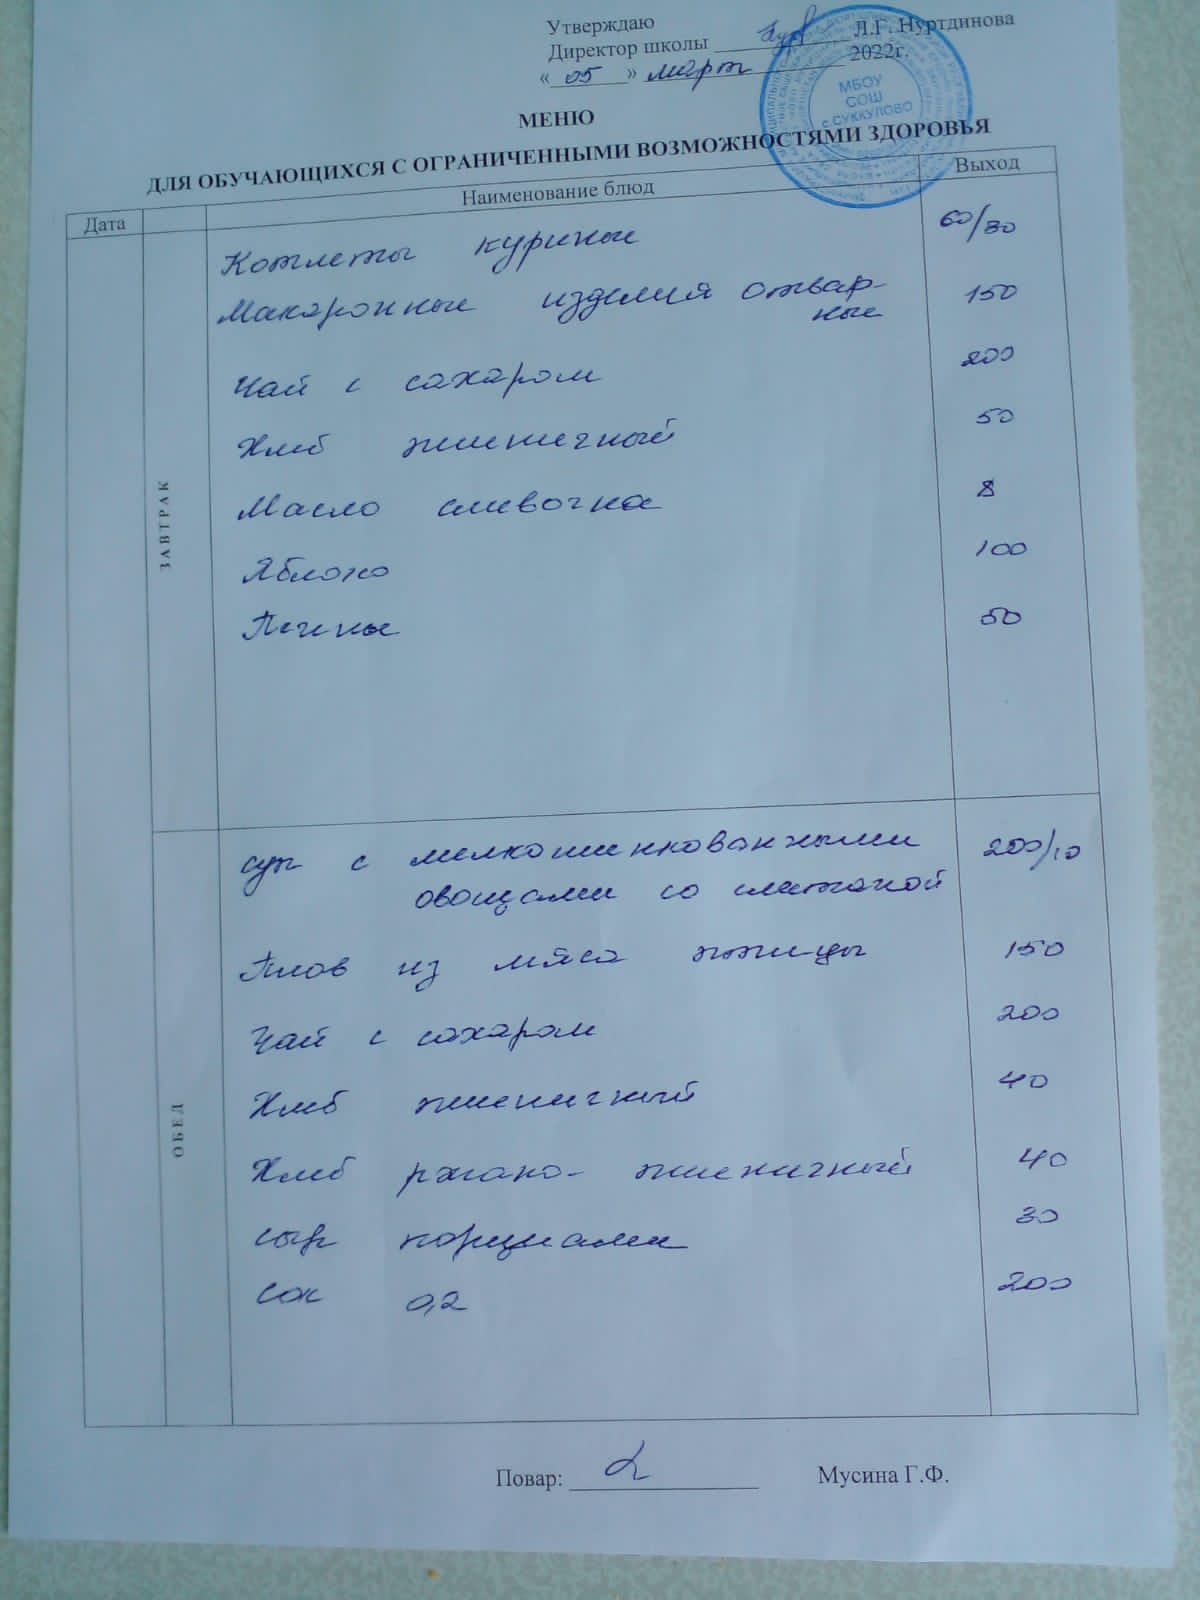 Утверждаю
Директор школы Л.Г. Нуртдинова
« 05 » март 2022г.
МБОУ
СОШ
с.СУККУЛОВО
МЕНЮ
ДЛЯ ОБУЧАЮЩИХСЯ С ОГРАНИЧЕННЫМИ ВОЗМОЖНОСТЯМИ ЗДОРОВЬЯ
Дата Наименование блюд Выход
ЗАВТРАК
Котлеты куриные 60/30
Макаронные изделия отвар-
ные 150
Чай с сахаром 200
Хлеб пшеничный 50
Масло сливочно 8
Яблоко 100
Печены 50
ОБЕД
суп с мелкошинкованными 200/10
овощами со сметаной
Плов из мяса птицы 150
Чай с сахаром 200
Хлеб пшеничный 40
Хлеб ржано-пшеничный 40
сыр порциями 30
Сок 0,2 200
Повар: Мусина Г.Ф.